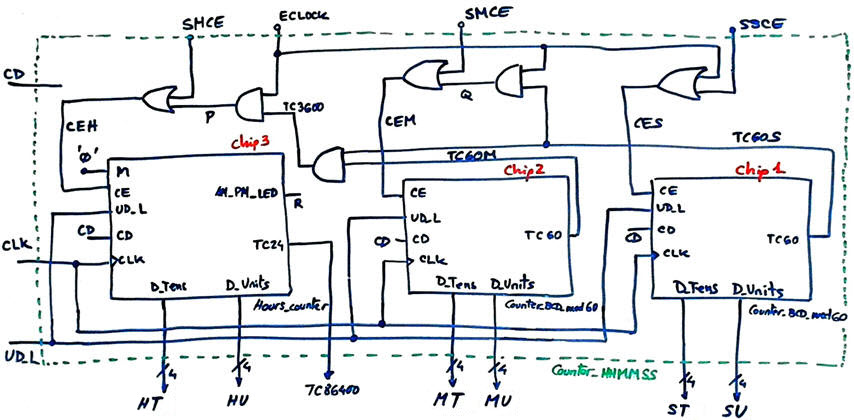 SMCE
ECLOCK
SMCE
SSCE
CD
P
TC3600
Q
CEH
CEM
CES
'0'
Chip3
TC60M
Chip2
TC60S
Chip1
M
CE
AM_PM_LED
R
UD_L
CD
CD
TC24
CLK
CLK
D_Tens
D_Units
Hours_counter
CE
UD_L
CD
CD
TC60
CLK
D_Tens
D_Units
Counter_BCD_mod60
CE
UD_L
CD
CD
TC60
CLK
D_Tens
D_Units
Counter_BCD_mod60
UD_L
Counter_HHMMSS
4
4
4
4
4
4
HT
HU
TC86400
MT
MU
ST
SU